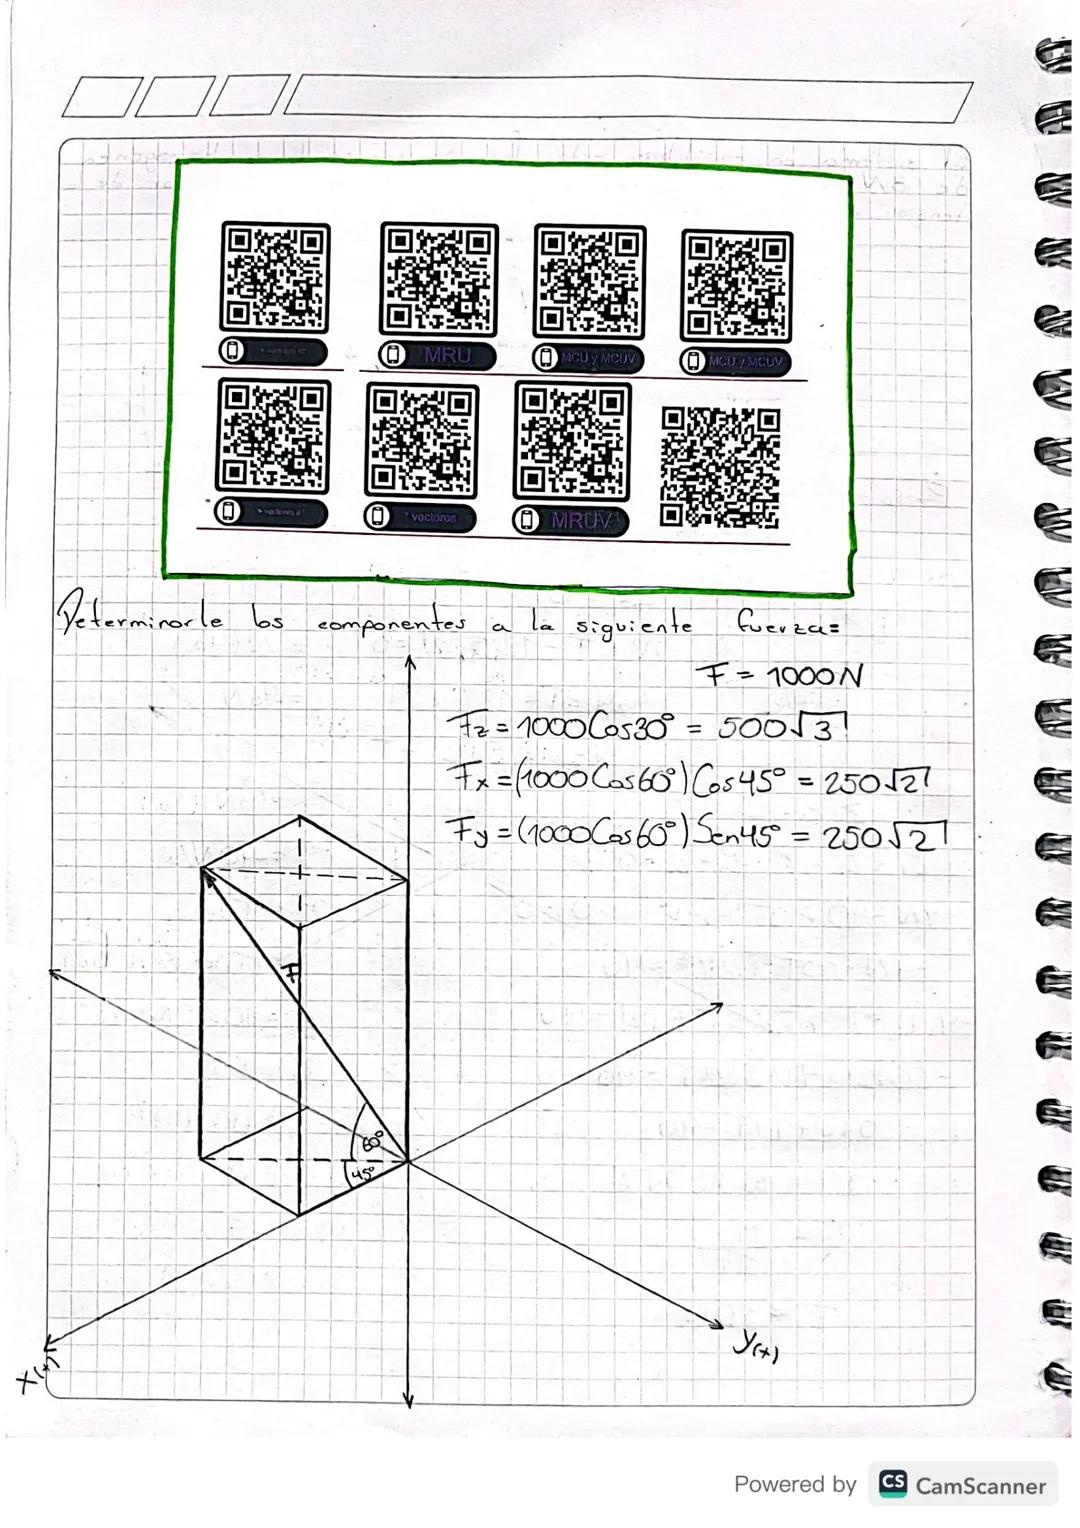 MRU
MCU y MCUV
MCU y MCUV
* vectores
MRUV
Determinarle los componentes a la siguiente fuerza=
F = 1000N
Fz = 1000Cos30° = 500√3
Fx = (1000Cos60°)Cos45° = 250√2
Fy = (1000Cos60°)Sen45° = 250√2
F
60°
45°
X(+)
Y(+)
Powered by CS CamScanner